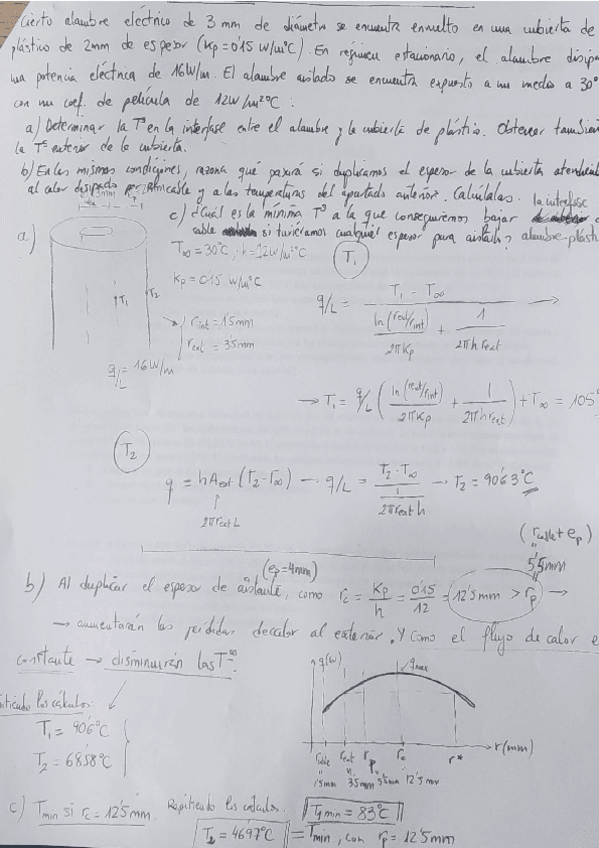 Cierto alambre eléctrico de 3 mm de diámetro se encuentra envuelto en una cubierta de
plástico de 2mm de espesor (Kp=0'15 W/m°C). En régimen estacionario, el alambre disipa
una potencia eléctrica de 16W/m. El alambre aislado se encuentra expuesto a un medio a 30°
con un coef. de película de 12W/m²°C:
a) Determinar la Tª en la interfase entre el alambre y la cubierta de plástico. Obtener también
la Tª exterior de la cubierta.
b) En las mismas condiciones, razona qué pasará si duplicamos el espesor de la cubierta atendiendo
al calor disipado por el cable y a las temperaturas del apartado anterior. Calcúlalas.
c) ¿Cuál es la mínima Tª a la que conseguiremos bajar la interfase
cable si tuviéramos cualquier espesor para aislado? alambre-plást
a)
T1 T2
T∞ = 30°C, h = 12W/m²°C
Kp = 0'15 W/m°C
rint = 1'5mm
rext = 3'5mm
q/L = 16W/m
T1
q/L = (T1 - T∞) / (ln(rext/rint)/2πKp + 1/2πh rext) →
→ T1 = q/L (ln(rext/rint)/2πKp + 1/2πh rext) + T∞ = 105°
T2
q = hAext (T2-T∞) → q/L = (T2-T∞) / (1/2πrext h) → T2 = 90'63°C
2πrext L
(rcable + ep)
5'5mm
(ep = 4mm)
b) Al duplicar el espesor de aislante, como rc = Kp/h = 0'15/12 = 12'5mm > rp →
→ aumentarán las pérdidas de calor al exterior. Y como el flujo de calor e
constante → disminuirán las Tªs
Repitiendo los cálculos:
T1 = 90'6°C
T2 = 68'58°C
q(W) qmax
rcable rext rp rc r* r(mm)
1'5mm 3'5mm 5'5mm 12'5mm
c) Tmin si rc = 12'5mm. Repitiendo los cálculos: T1min = 83°C
T2 = 46'97°C = Tmin, con rp = 12'5mm